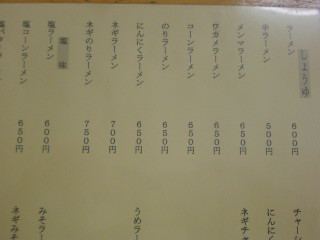 しょうゆ
ラーメン 600円
半ラーメン 500円
メンマラーメン 650円
ワカメラーメン 650円
コーンラーメン 650円
のりラーメン 650円
にんにくラーメン 650円
ネギラーメン 700円
ネギのりラーメン 750円
塩味
塩ラーメン 600円
塩コーンラーメン 650円
チャーシ
にんにく
ネギチャ
うめラー
みそラー
ネギみそ